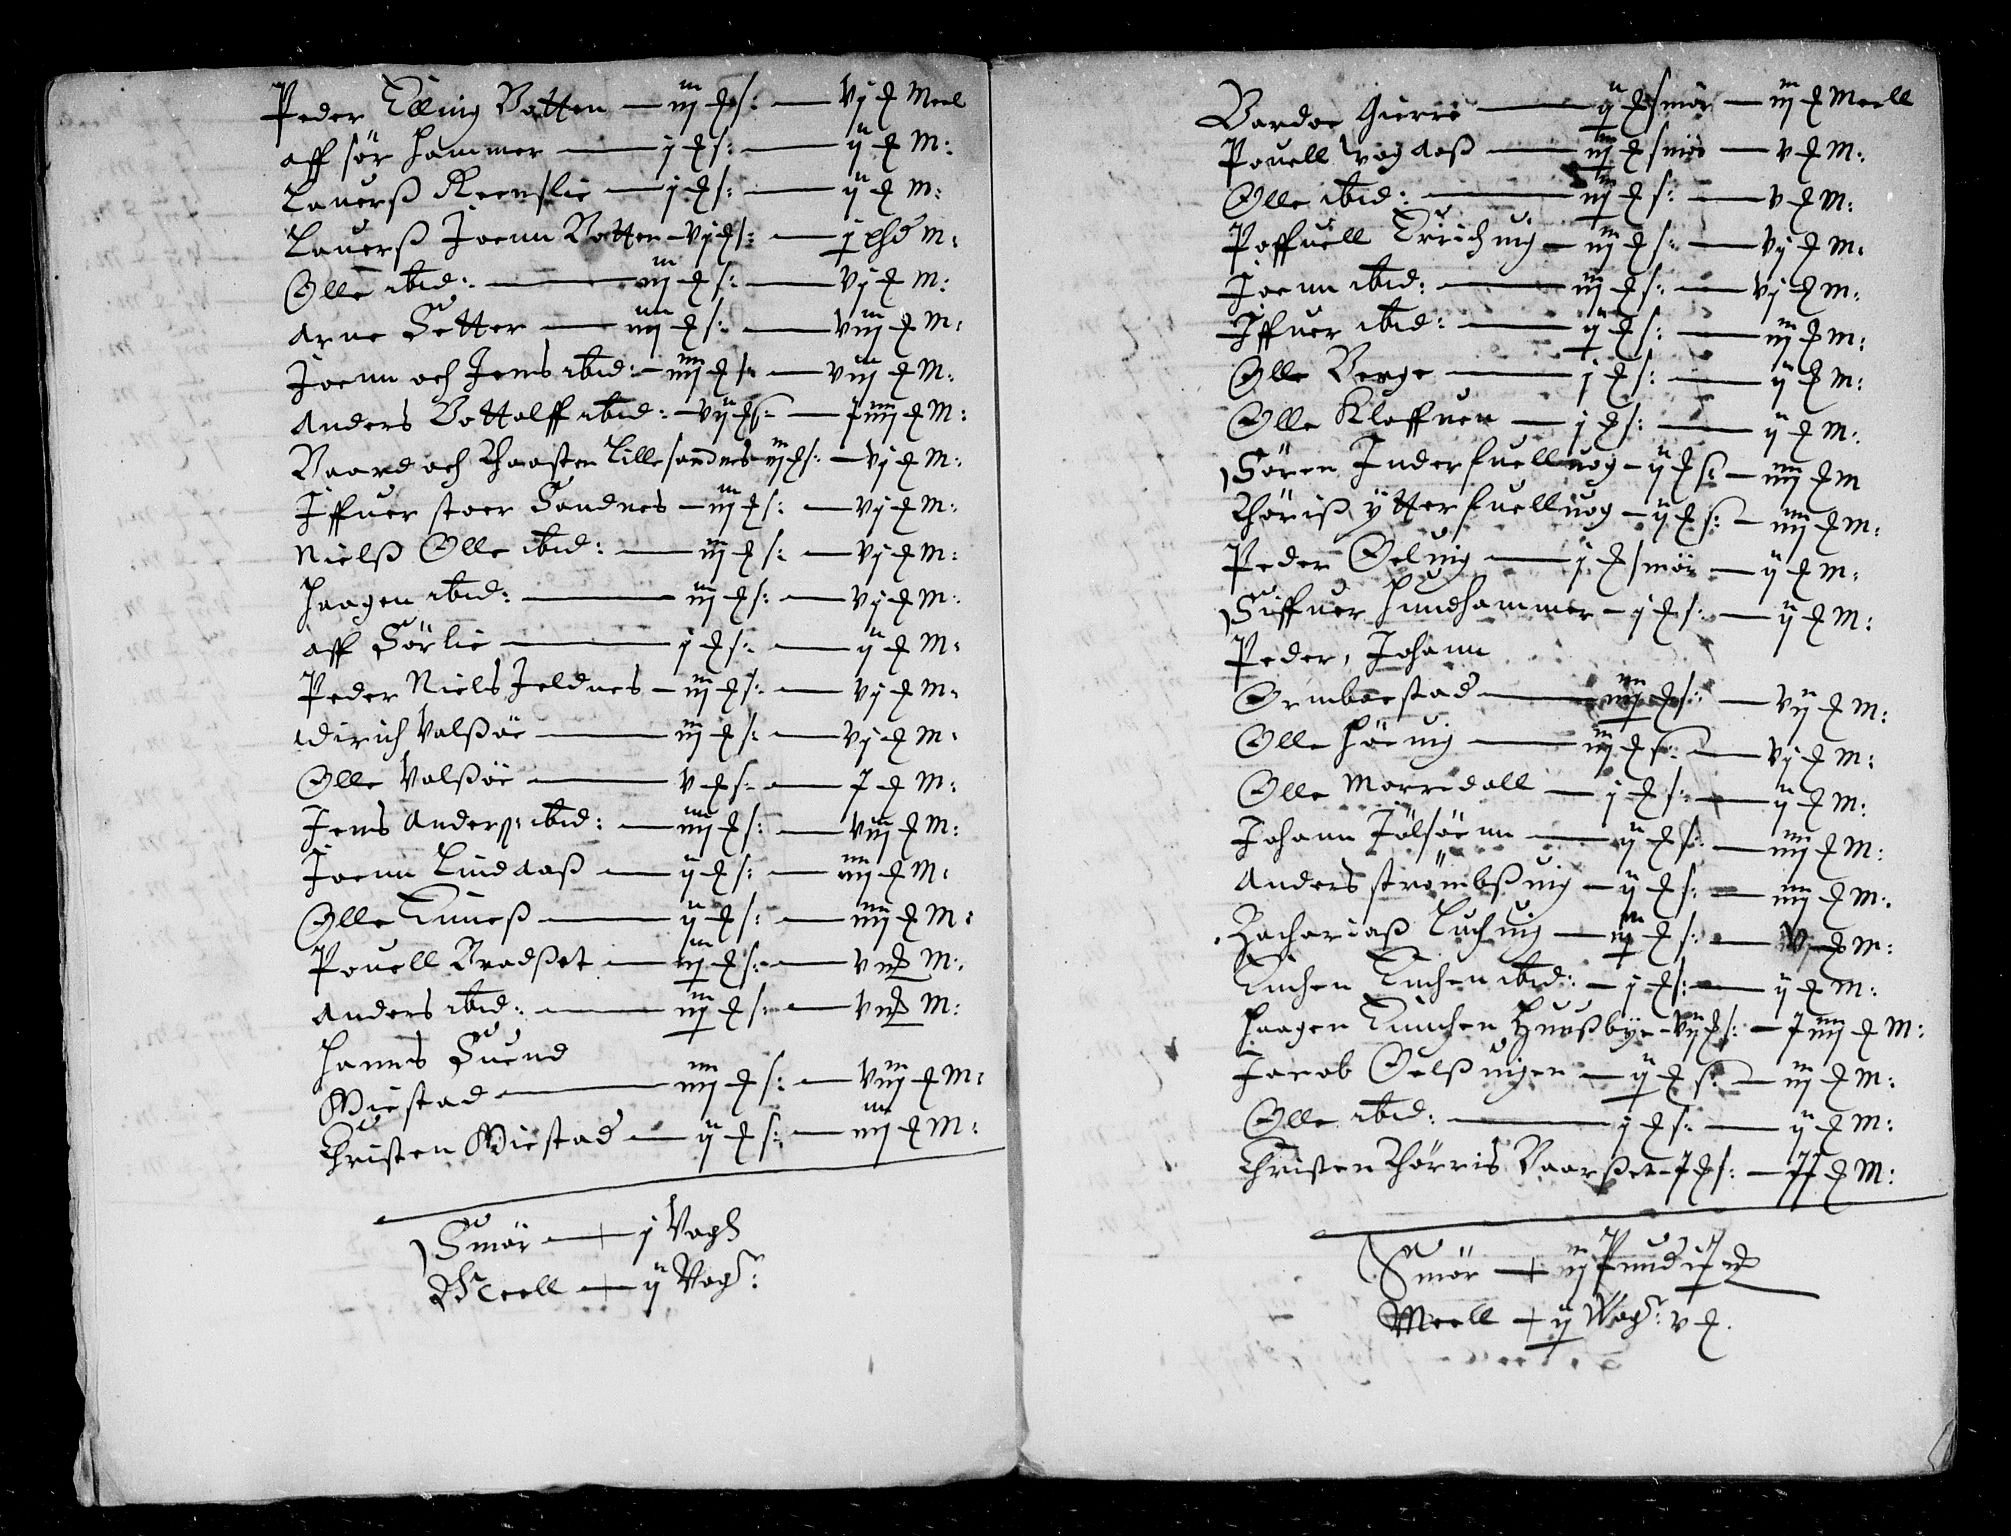 Peder Elling Votten — iij ℔ s: — vj ℔ Meel
aff sör Hammer — j ℔ s: — ij ℔ M:
Lauerß Reenslie — j ℔ s: — ij ℔ M:
Lauerß Joenn Votten — vj ℔ s: — j M:
Olle ibid: — iij ℔ s: — vj ℔ M:
Arne Setter — iiij ℔ s: — viij ℔ M:
Joenn och Jens ibid: — iiij ℔ s: — viij ℔ M:
Anders Bottolff ibid: — vij ℔ s: — Xiiij ℔ M:
Baard och Thaasten Lille sandnes — iij ℔ s: — vj ℔ M:
Iffuer stoer Sandnes — iij ℔ s: — vj ℔ M:
Nielß Olle ibid: — iij ℔ s: — vj ℔ M:
Haagen ibid: — iij ℔ s: — vj ℔ M:
aff Sörlie — j ℔ s: — ij ℔ M:
Peder Niels Jeldnes — iij ℔ s: — vj ℔ M:
Didrich Valßöe — iij ℔ s: — vj ℔ M:
Olle Valßöe — v ℔ s: — X ℔ M:
Jens Anderß: ibid: — iiij ℔ s: — viij ℔ M:
Joenn Lindaaß — ij ℔ s: — iiij ℔ M:
Olle — ij ℔ s: — iiij ℔ M:
Pouell Bradßet — iij ℔ s: — v ℔ M:
Anders ibid: — iij ℔ s: — v ℔ M:
Hanns Suend
Miestad — iiij ℔ s: — viij ℔ M:
Christen Miestad — ij ℔ s: — iiij ℔ M:
Smör — j Vogh
Meell — ij Vogh:
Bardoe Gierre — ij ℔ smör — iij ℔ Meell
Pouell Vogaaß — iij ℔ smör — v ℔ M:
Olle ibid: — iij ℔ s: — v ℔ M:
Poffuell Errichuig — iij ℔ s: — vj ℔ M:
Joenn ibid: — iij ℔ s: — vj ℔ M:
Iffuer ibid: — ij ℔ s: — iij ℔ M:
Olle Berge — j ℔ s: — ij ℔ M:
Olle Kloffuen — j ℔ s: — ij ℔ M:
Sören Inderfuelluog — ij ℔ s: — iiij ℔ M
Thöriß ÿtterfuelluog — ij ℔ s: — iiij ℔ M:
Peder Oeluig — j ℔ smör — ij ℔ M:
Siffuer Hundhammer — j ℔ s: — ij ℔ M:
Peder, Johann
Ormboestad — iiij ℔ s: — vij ℔ M:
Olle Höeuig — iij ℔ s: — vj ℔ M:
Olle Morredall — j ℔ s: — ij ℔ M:
Johann Jölsöenn — ij ℔ s: — iiij ℔ M:
Anders strömbßuig — ij ℔ s: — iiij ℔ M:
Zachariaß Luchuig — iij ℔ s: — v ℔ M:
ibid: — j ℔ s: — ij ℔ M:
Haagen Hueßbye — vij ℔ s: — Xiiij ℔ M:
Jacob Oelßuigen — ij ℔ s: — iij ℔ M:
Olle ibid: — j ℔ s: — ij ℔ M:
Christen Thörris Vaarßet — X ℔ s: — XX ℔ M:
Smör — iij Pund
Meell — ij Vogh: v ℔.